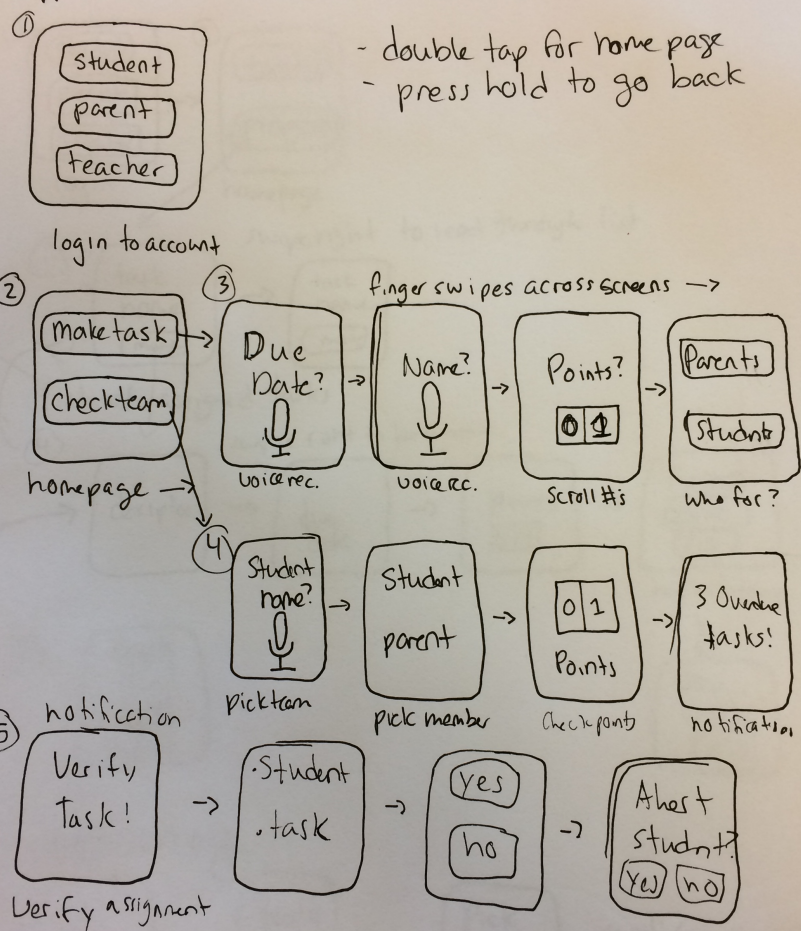 ①
student
parent
teacher
login to account
- double tap for home page
- press hold to go back
②
make task
check team
homepage →
③
finger swipes across screens →
Due
Date?
voice rec.
Name?
voice rec.
Points?
0 1
Scroll #'s
Parents
Students
who for?
④
Student
name?
pick team
Student
parent
pick member
0 1
Points
check points
3 Overdue
tasks!
notification
5
notification
Verify
Task!
Verify assignment
·Student
·task
yes
no
Alert
student?
yes no